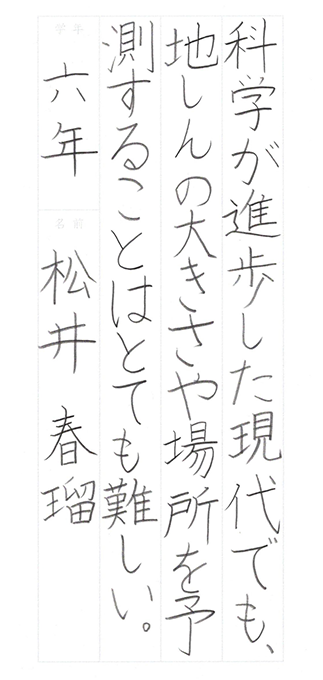 科学が進歩した現代でも、
地しんの大きさや場所を予
測することはとても難しい。
学年
六年
名前
松井 春瑠